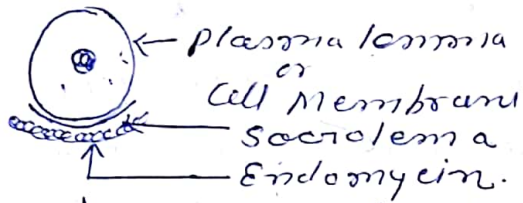 Plasma lemmia
or
Cell Membrane
Socrolema
Endomycin.